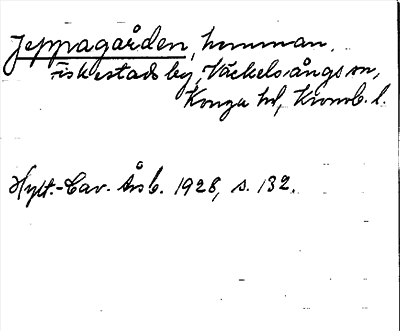 Jeppagården, hemman,
Fiskestads by, Väckelsångs sn,
Konga hd, Kronob. l.
Hylt.-Cav. Årsb. 1928, s. 132.